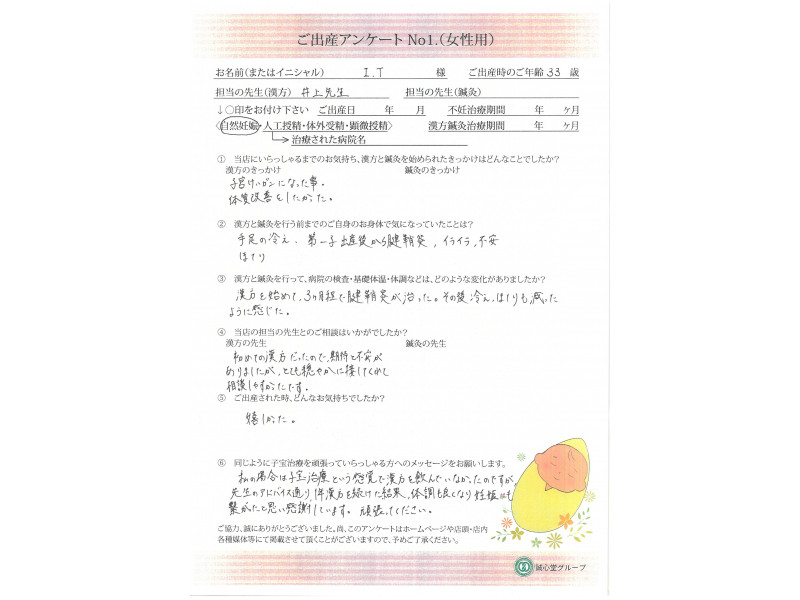 ご出産アンケート No1.(女性用)
お名前(またはイニシャル) I.T 様 ご出産時のご年齢 33 歳
担当の先生(漢方) 井上先生 担当の先生(鍼灸)
↓○印をお付け下さい ご出産日 年 月 不妊治療期間 年 ヶ月
〈自然妊娠・人工授精・体外受精・顕微授精〉 漢方鍼灸治療期間 年 ヶ月
治療された病院名
① 当店にいらっしゃるまでのお気持ち、漢方と鍼灸を始められたきっかけはどんなことでしたか?
漢方のきっかけ 鍼灸のきっかけ
子宮けいガンになった事。
体質改善をしたかった。
② 漢方と鍼灸を行う前までのご自身のお身体で気になっていたことは?
手足の冷え、第一子出産後から腱鞘炎、イライラ、不安
ほてり
③ 漢方と鍼灸を行って、病院の検査・基礎体温・体調などは、どのような変化がありましたか?
漢方を始めて、3ヶ月程で腱鞘炎が治った。その後冷え、ほてりも減った
ように感じた。
④ 当店の担当の先生とのご相談はいかがでしたか?
漢方の先生 鍼灸の先生
初めての漢方だったので、期待と不安が
ありましたが、とても穏やかに接してくれて
相談しやすかったです。
⑤ ご出産された時、どんなお気持ちでしたか?
嬉しかった。
⑥ 同じように子宝治療を頑張っていらっしゃる方へのメッセージをお願いします。
私の場合は子宝治療という感覚で漢方を飲んでいなかったのですが、
先生のアドバイス通り、漢方を続けた結果、体調も良くなり妊娠にも
繋がたと思い感謝しています。頑張ってください。
ご協力、誠にありがとうございました。尚、このアンケートはホームページや店頭・店内
各種媒体等にて掲載させて頂くことがございますので、予めご了承ください。
誠心堂グループ